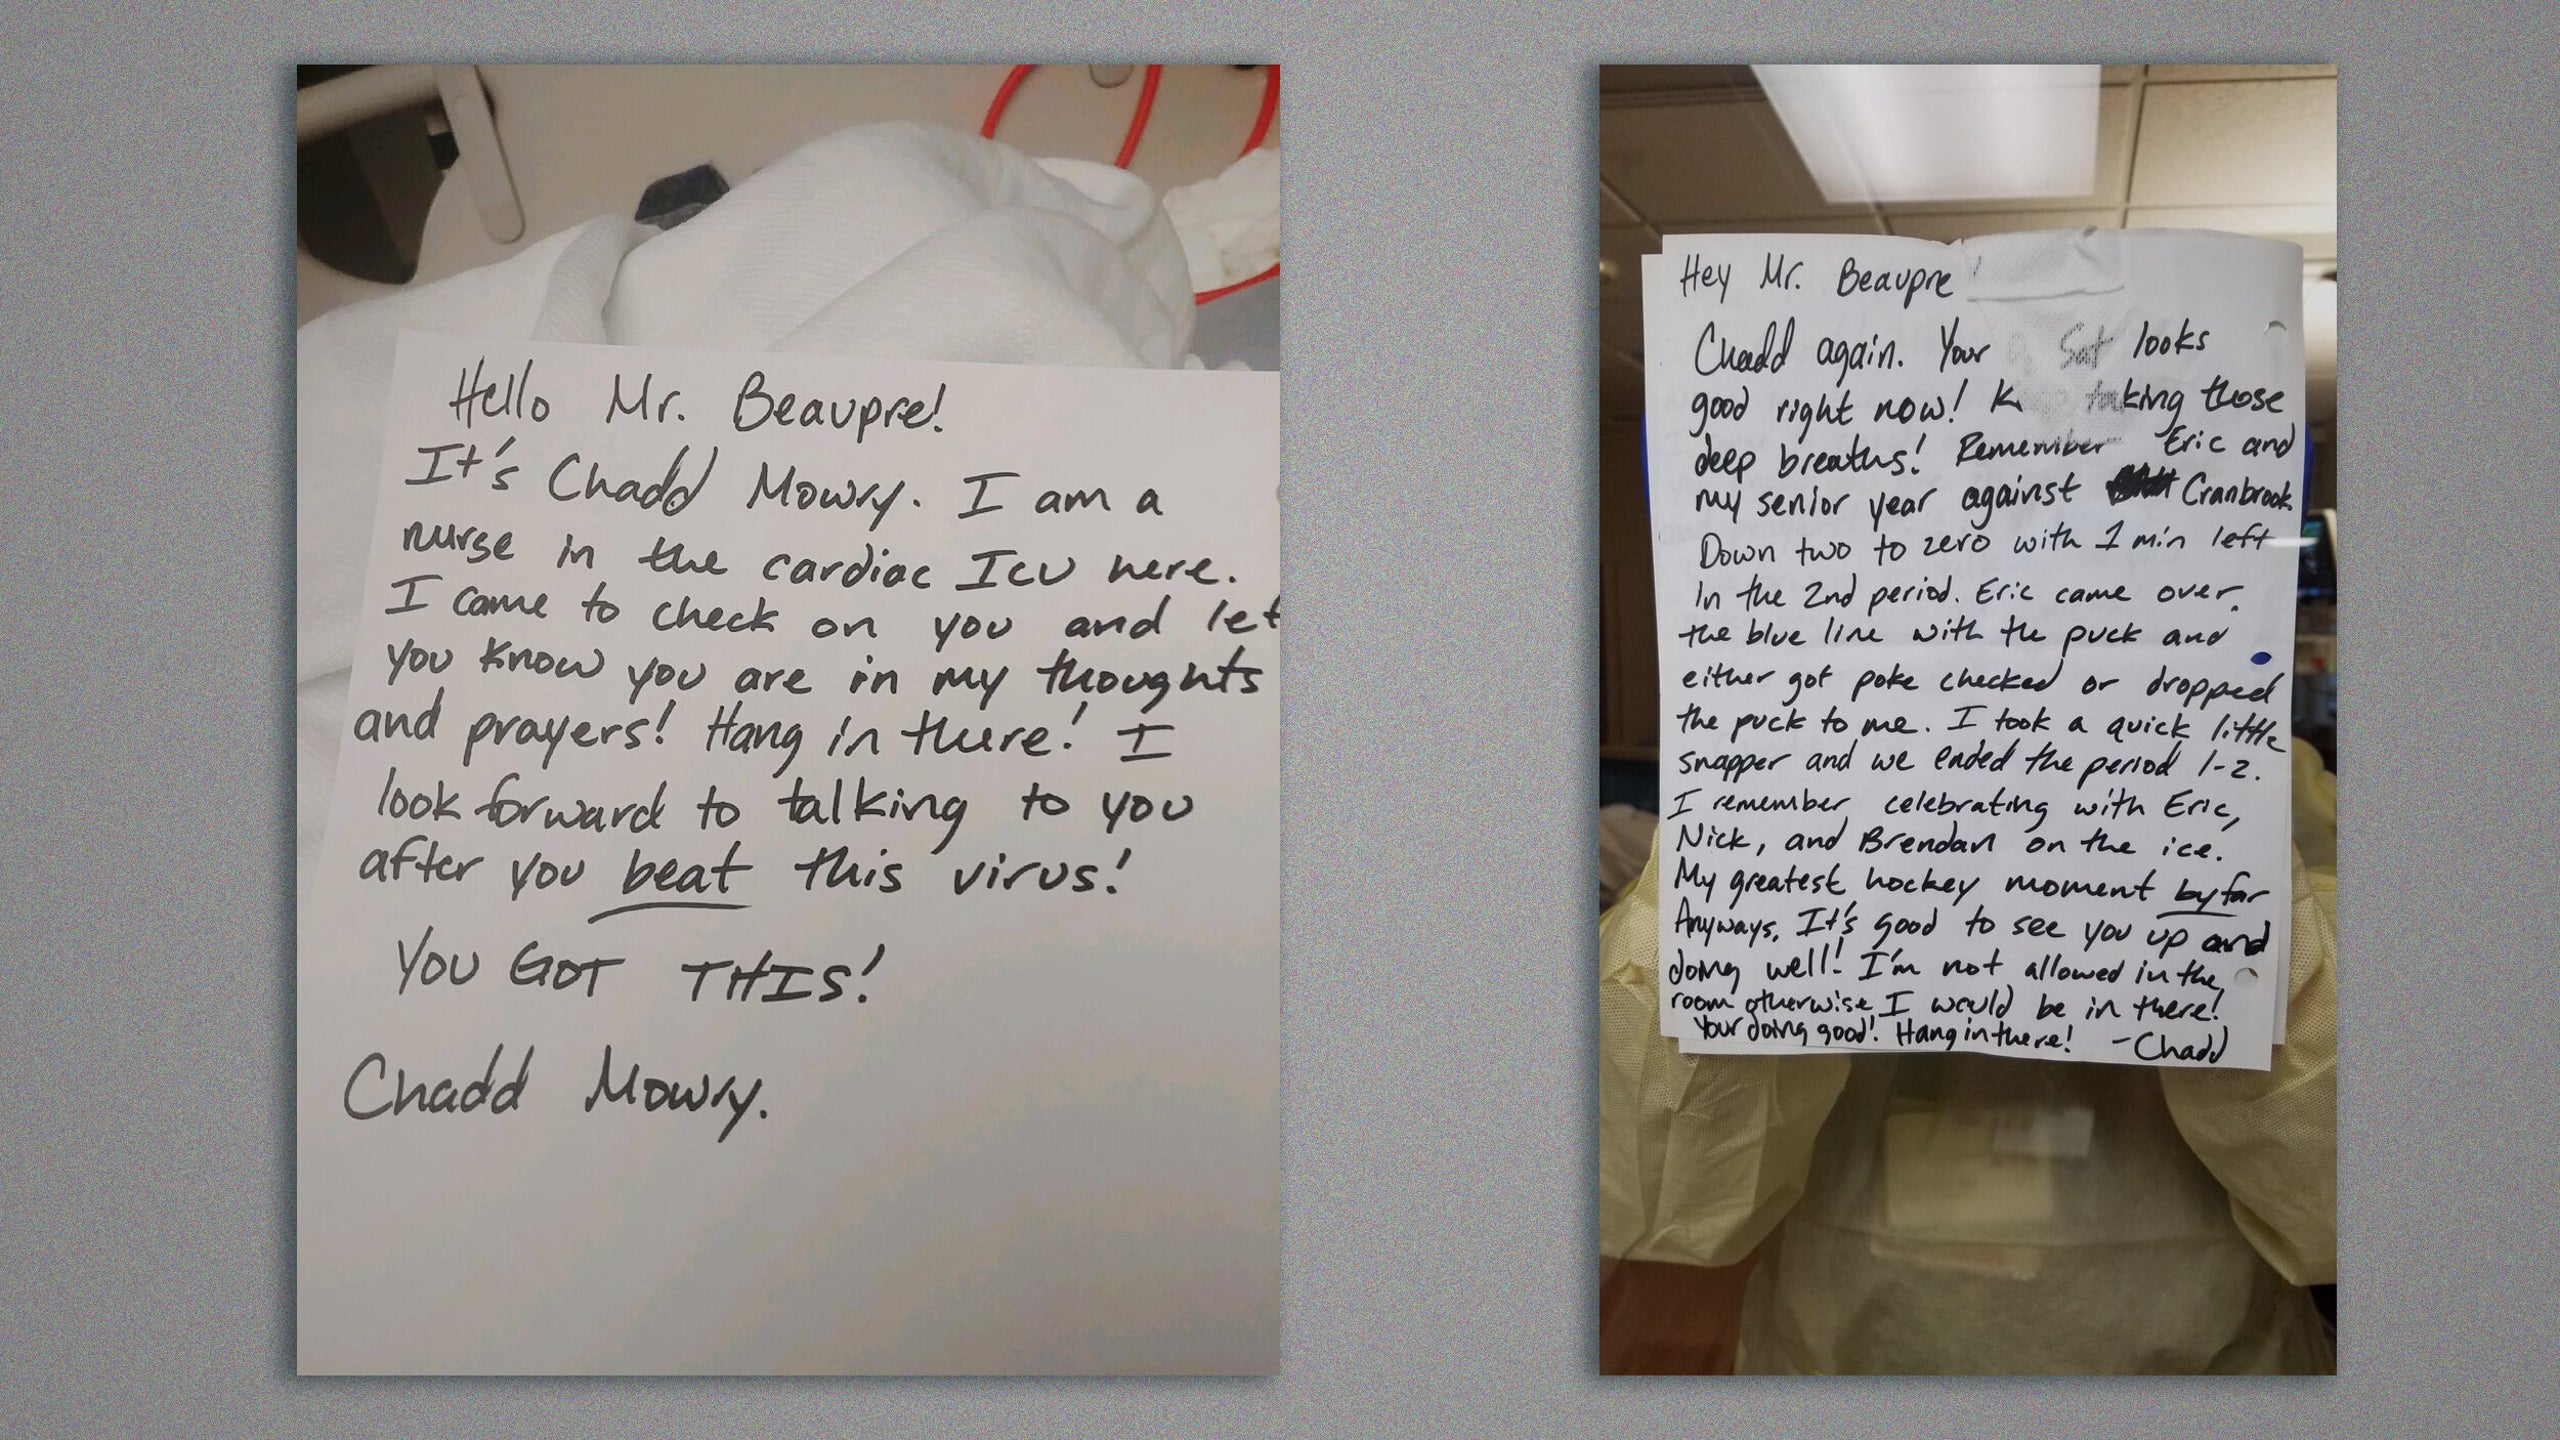 Hello Mr. Beaupre!
It's Chadd Mowry. I am a
nurse in the cardiac ICU here.
I came to check on you and let
you know you are in my thoughts
and prayers! Hang in there! I
look forward to talking to you
after you beat this virus!
YOU GOT THIS!
Chadd Mowry.
Hey Mr. Beaupre
Chadd again. Your Sat looks
good right now! taking those
deep breaths! Remember Eric and
my senior year against Cranbrook.
Down two to zero with 1 min left
In the 2nd period. Eric came over
the blue line with the puck and
either got poke checked or dropped
the puck to me. I took a quick little
snapper and we ended the period 1-2.
I remember celebrating with Eric,
Nick, and Brendan on the ice.
My greatest hockey moment by far
Anyways, It's good to see you up and
doing well! I'm not allowed in the
room otherwise I would be in there!
Your doing good! Hang in there! -Chadd